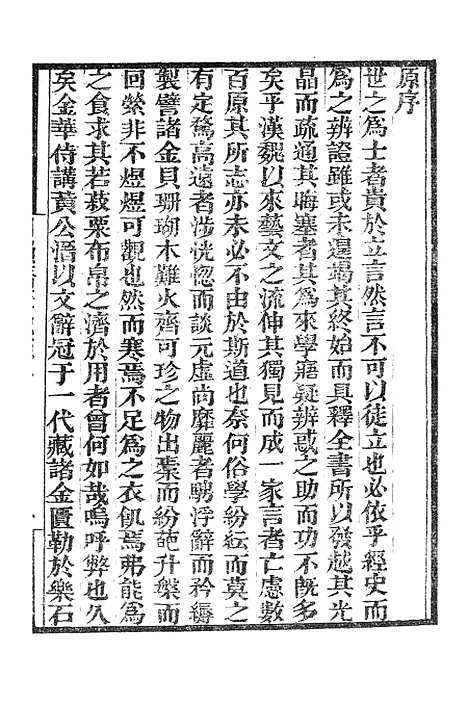 原序
世之爲士者貴於立言然言不可以徒立也必依乎經史而
爲之辨證雖或未遑竭其終始而具釋全書所以發越其光
晶而疏通其晦塞者其爲來學寤疑辨惑之助而功不旣多
矣乎漢魏以來藝文之流伸其獨見而成一家言者亡慮數
百原其所志亦未必不由於斯道也奈何俗學紛紜而莫之
有定騖高遠者涉恍惚而談元虛尚靡麗者騁浮辭而矜縟
製譬諸金貝珊瑚木難火齊可珍之物出藁而紛葩升槃而
回縈非不煜煜可觀也然而寒焉不足爲之衣飢焉弗能爲
之食求其若菽粟布帛之濟於用者曾何如哉嗚呼弊也久
矣金華侍講黃公溍以文辭冠于一代藏諸金匱勒於樂石